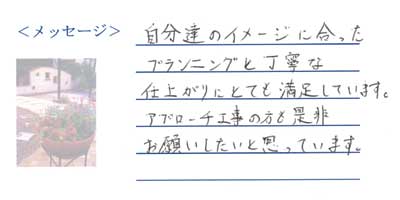 ＜メッセージ＞
自分達のイメージに合った
プランニングと丁寧な
仕上がりにとても満足しています。
アプローチ工事の方も是非
お願いしたいと思っています。